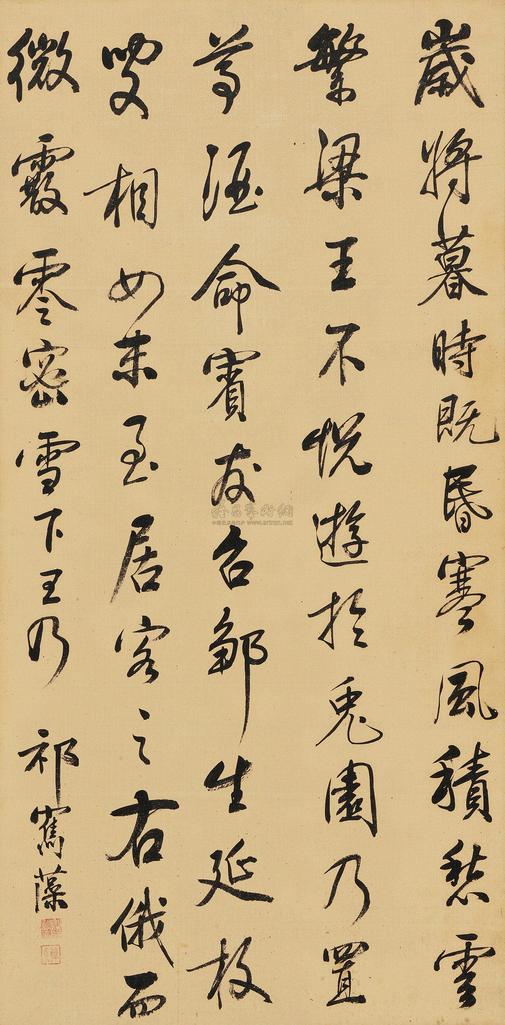 歲將暮時既昏寒風積愁雲
繁梁王不悅遊於兎園乃置
旨酒命賓友召鄒生延枚
叟相如末至居客之右俄而
微霰零密雪下王乃
祁寯藻